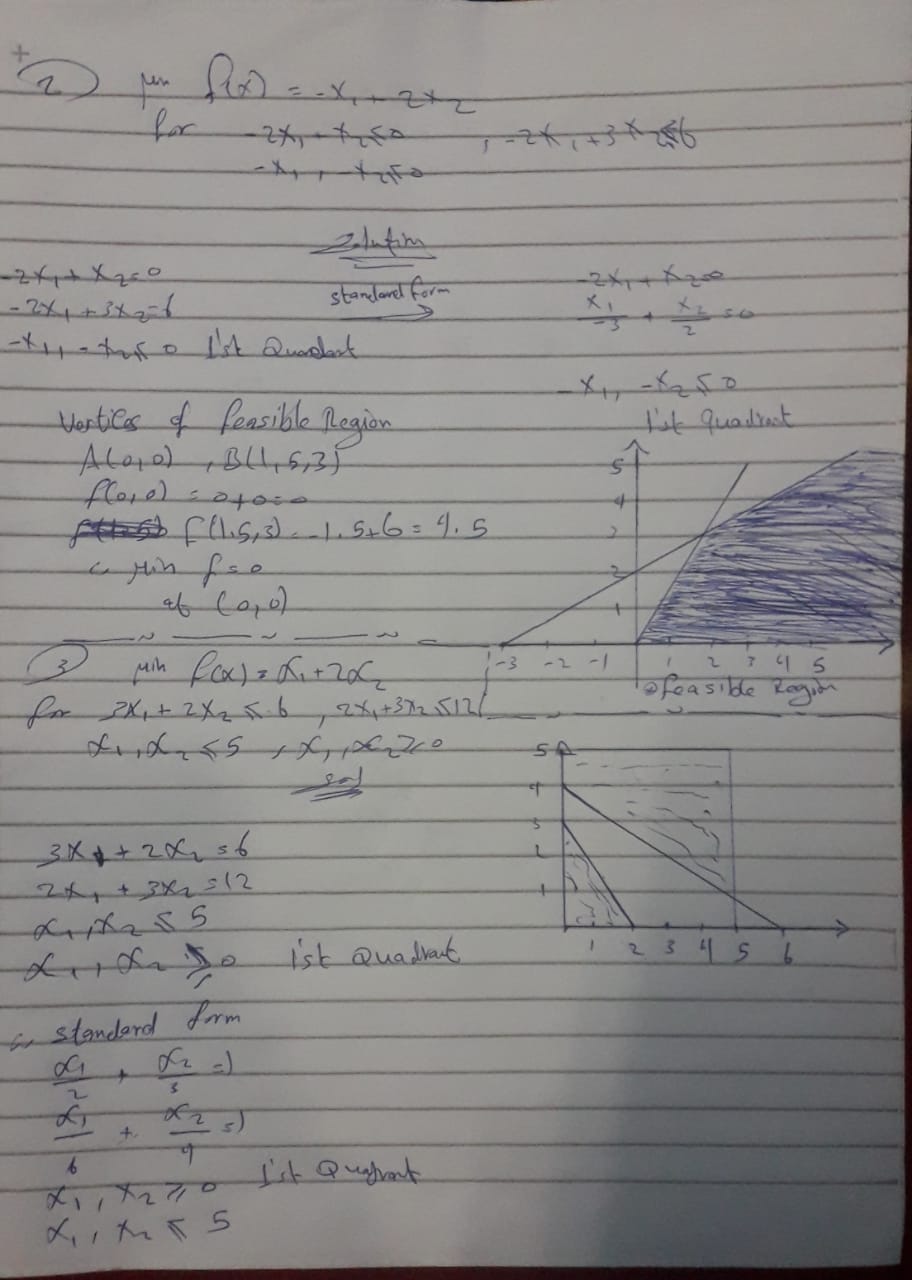 2) min f(x) = -x₁ + 2x₂
for -2x₁ + x₂ ≤ 0 , -2x₁ + 3x₂ ≤ 6
-x₁ , -x₂ ≤ 0
Solution
-2x₁ + x₂ = 0
-2x₁ + 3x₂ = 6
-x₁ , -x₂ ≤ 0 1'st Quadrant
standard form
-2x₁ + x₂ = 0
x₁/-3 + x₂/2 = 0
-x₁, -x₂ ≤ 0
1'st Quadrant
Vertices of feasible Region
A(0,0) , B(1,5,3)
f(0,0) = 0+0=0
f(1.5,3) = -1.5+6 = 4.5
∴ Min f = 0
at (0,0)
5
4
3
2
1
-3 -2 -1 1 2 3 4 5
feasible Region
3) min f(x) = x₁ + 2x₂
for 3x₁ + 2x₂ ≤ 6 , 2x₁ + 3x₂ ≤ 12
x₁, x₂ ≤ 5 , x₁, x₂ ≥ 0
sol
3x₁ + 2x₂ = 6
2x₁ + 3x₂ = 12
x₁, x₂ ≤ 5
x₁, x₂ ≥ 0 1'st Quadrant
5
4
3
2
1
1 2 3 4 5 6
∴ standard form
x₁/2 + x₂/3 = 1
x₁/6 + x₂/4 = 1
x₁, x₂ ≥ 0 1'st Quadrant
x₁, x₂ ≤ 5